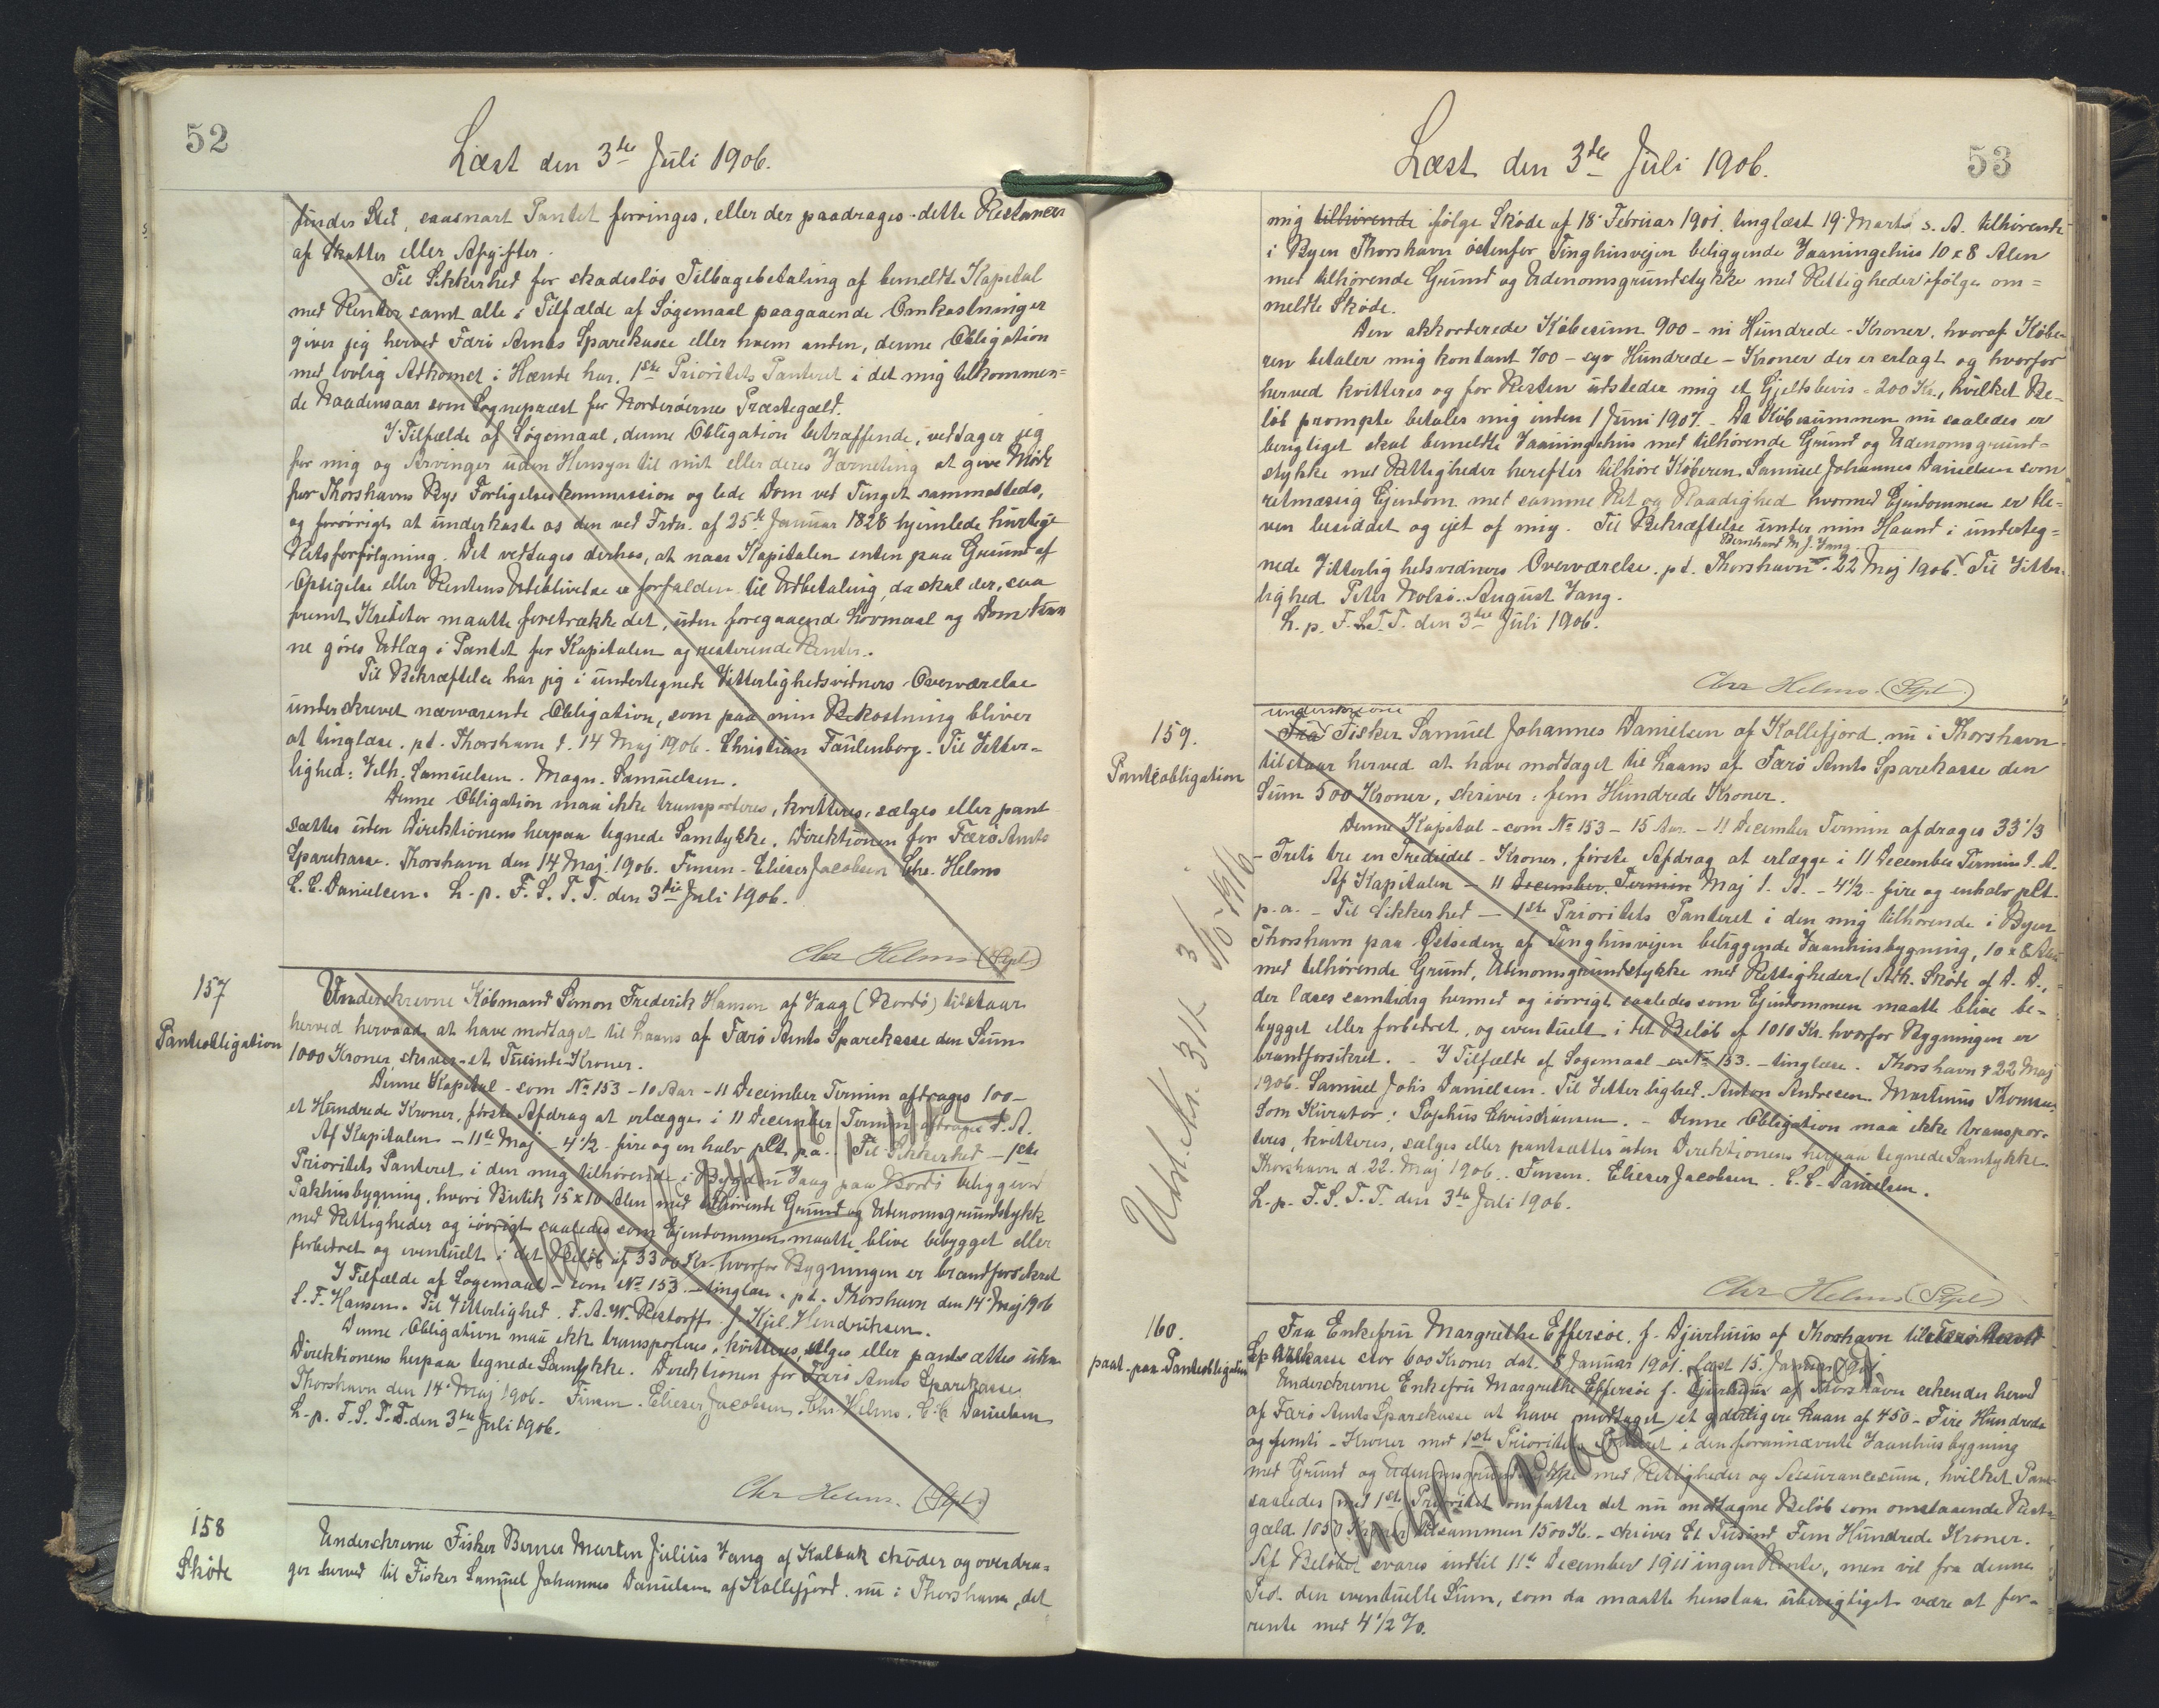 52
Læst den 3die Juli 1906.
finder Sted, saasnart Pantet forringes, eller der paadrages dette Restancer
af Skatter eller Afgifter.
Til Sikkerhed for skadesløs Tilbagebetaling af bemeldte Kapital
med Renter samt alle i Tilfælde af Søgemaal paagaaende Omkostninger
giver jeg herved Færø Amts Sparekasse eller hvem anden, denne Obligation
med lovlig Adkomst i Hænde har, 1ste Prioritets Panteret i det mig tilkommen=
de Naadensaar som Sognepræst for Norderøernes Præstegæld.
I Tilfælde af Søgemaal, denne Obligation betræffende, vedtager jeg
for mig og Arvinger uden Hensyn til mit eller deres Værneting at give Møde
for Thorshavns Bys Forligelseskommission og lide Dom ved Tinget sammesteds,
og forøvrigt at underkaste os den ved Frdn. af 25de Januar 1828 hjemlede hurtige
Retsforfølgning. Det vedtages derhos, at naar Kapitalen enten paa Grund af
Opsigelse eller Rentens Udeblivelse er forfalden til Udbetaling, da skal der, saa
fremt Kreditor maatte foretrække det, uden foregaaende Lovmaal og Dom kun
ne gøres Udlæg i Pantet for Kapitalen og resterende Renter.
Til Bekræftelse har jeg i undertegnede Vitterlighedsvidners Overværelse
underskrevet nærværende Obligation, som paa min Bekostning bliver
at tinglæse. pt. Thorshavn d. 14 Maj 1906. Christian Faulenborg. Til Vitter=
lighed: Vilh. Samuelsen. Magn. Samuelsen.
Denne Obligation maa ikke transporteres, kvitteres, sælges eller pant
sættes uden Direktionens herpaa tegnede Samtykke. Direktionen for Færø Amts
Sparekasse. Thorshavn den 14 Maj 1906. Finsen. Elieser Jacobsen Chr. Helms
E. C. Danielsen. L. p. F. S. T. T. den 3die Juli 1906.
Chr Helms (Sgpl)
157
Panteobligation
Underskrevne Købmand Simon Frederik Hansen af Vaag (Bordø) tilstaar
herved hervaad at have modtaget til Laans af Færø Amts Sparekasse den Sum
1000 Kroner skriver et Tusinde Kroner.
Denne Kapital - som No 153 - 10 Aar - 11 December Termin afdrages 100 -
et Hundrede Kroner, første Afdrag at erlægge i 11 December Termin afdrages d. A.
Af Kapitalen - 11te Maj - 4 1/2 - fire og en halv pCt. p.a. Til Sikkerhed - 1ste
Prioritets Panteret i den mig tilhørende i Bygden Vaag paa Bordø beliggende
Pakhusbygning, hvori Butik 15 x 10 Alen med tilhørende Grund og Udenomsgrundstykk
med Rettigheder og iøvrigt saaledes som Ejendommen maatte blive bebygget eller
forbedret og eventuelt i det Beløb af 3300 Kr. hvorfor Bygningen er brandforsikret
I Tilfælde af Søgemaal - som No 153 - tinglæse. pt. Thorshavn den 14 Maj 1906
S. F. Hansen. Til Vitterlighed. F. A. W. Restorff. J. Kjel. Hendriksen.
Denne Obligation maa ikk transporteres, kvitteres, sælges eller pantsættes uden
Direktionens herpaa tegnede Samtykke. Direktionen for Færø Amts Sparekasse
Thorshavn den 14 Maj 1906. Finsen. Elieser Jacobsen. Chr. Helms. E. C. Danielsen
L. p. F. S. T. T. den 3die Juli 1906.
Chr Helms. (Sgpl)
158
Skøde
Underskrevne Fisker Berner Martin Julius Vang af Kalbak skøder og overdra=
ger herved til Fisker Samuel Johannes Danielsen af Kollefjord nu i Thorshavn, det
53
Læst den 3die Juli 1906.
mig tilhørende ifølge Skøde af 18 Februar 1901, tinglæst 19 Marts s. A. tilhørende
i Byen Thorshavn østenfor Tinghusvejen beliggende Vaaningehus 10 x 8 Alen
med tilhørende Grund og Udenomsgrundstykke med Rettigheder ifølge om=
meldte Skøde.
Den akkorderede Købesum 900 - ni Hundrede - Kroner, hvoraf Købe-
ren betaler mig kontant 700 - syv Hundrede - Kroner der er erlagt og hvorfor
herved kvitteres og for Resten udsteder mig et Gjeldsbevis = 200 Kr., hvilket Be-
løb prompte betales mig inden 1 Juni 1907. - Da Købesummen nu saaledes er
berigtiget skal bemeldte Vaaningehus med tilhørende Grund og Udenomsgrund=
stykke med Rettigheder herefter tilhøre Køberen Samuel Johannes Danielsen som
retmæssig Ejendom med samme Ret og Raadighed hvormed Ejendommen er ble-
ven besiddet og ejet af mig. Til Bekræftelse under min Haand i underteg=
Bernhard M J. Vang
nede Vitterlighedsvidners Overværelse. pt. Thorshavn. 22 Maj 1906. Til Vitter-
lighed. Peter Nolsø. August Vang.
L. p. F. S. T. T. den 3die Juli 1906.
Chr Helms. (Sgpl.)
159.
Panteobligation
Udsl. Nr. 311 3/10 1916
underskrevne
Fra Fisker Samuel Johannes Danielsen af Kollefjord, nu i Thorshavn
tilstaar herved at have modtaget til Laans af Færø Amts Sparekasse den
Sum 500 Kroner, skriver: fem Hundrede Kroner.
Denne Kapital - som No 153 - 15 Aar - 11 December Termin afdrages 33 1/3
- Treti tre en Trediedel - Kroner, første Afdrag at erlægge i 11 December Termin d. A.
Af Kapitalen - 11 December Termin Maj d. A. - 4 1/2 - fire og enhalv pCt.
p.a. - Til Sikkerhed - 1ste Prioritets Panteret i den mig tilhørende i Byen
Thorshavn paa Østsiden af Tinghusvejen beliggende Vaanhusbygning, 10 x 8 Alen
med tilhørende Grund, Udenomsgrundstykke med Rettigheder (Adk. Skøde af D. D.,
der læses samtidig hermed og iøvrigt saaledes som Ejendommen maatte blive be-
bygget eller forbedret, og eventuelt i det Beløb af 1010 Kr. hvorfor Bygningen er
brandforsikret. - I Tilfælde af Søgemaal - No 153. - tinglæse. Thorshavn d 22 Maj
1906. Samuel Johs Danielsen. Til Vitterlighed. Anton Andresen. Martinus Thomsen
Som Kurator: Sophus Christiansen. - Denne Obligation maa ikke transpor-
teres, kvitteres, sælges eller pantsættes uden Direktionens herpaa tegnede Samtykke.
Thorshavn d. 22. Maj 1906. Finsen. Elieser Jacobsen. E. C. Danielsen.
L. p. F. S. T. T. den 3die Juli 1906.
Chr Helms (Sgpl)
160.
paat. paa Panteobligation
Fra Enkefru Margrethe Effersøe, f. Djurhuus af Thorshavn til Færø Amts
Sparekasse stor 600 Kroner dat. 8 Januar 1901. læst 15. Januar 1901.
Underskrevne Enkefru Margrethe Effersøe f. Djurhuus af Thorshavn erkender herved
af Færø Amts Sparekasse at have modtaget et yderligere Laan af 450 - Fire Hundrede
og femti - Kroner med 1ste Prioritets Panteret i den forannævnte Vaanhusbygning
med Grund og Udenomsgrundstykke med Rettigheder og Assurancesum, hvilket Pant
saaledes med 1ste Prioritet omfatter det nu modtagne Beløb som omstaaende Rest-
gæld 1050 Kroner tilsammen 1500 Kr. - skriver Et Tusind Fem Hundrede Kroner.
Af Beløbet svares indtil 11te December 1911 ingen Rente, men vil fra denne
Tid den eventuelle Sum, som da maatte henstaa uberigtiget være at for-
rente med 4 1/2 %.